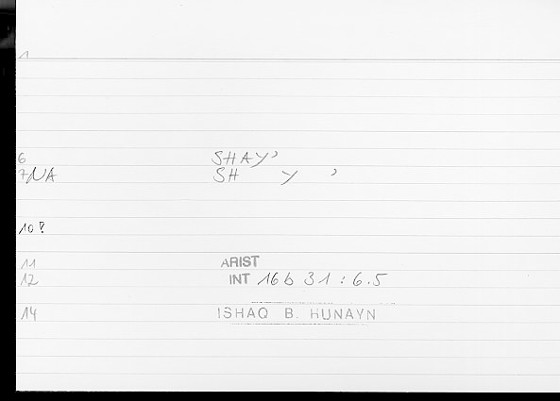 1
6 SHAY'
7NA SH Y '
10?
11 ARIST
12 INT 16b 31 : 6.5
14 ISHAQ B. HUNAYN